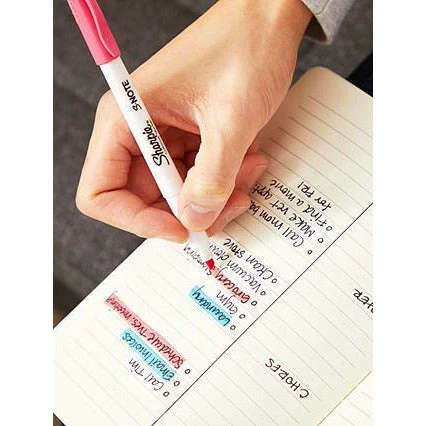 Sharpie
S-NOTE
Call mom ba
Make vet appt
Find a movie
for FRI
Grocery
Vacuum
Clean stove
Laundry
Gym
Schedule Tues. meeting
Email Invoices
Call Tim
CHORES